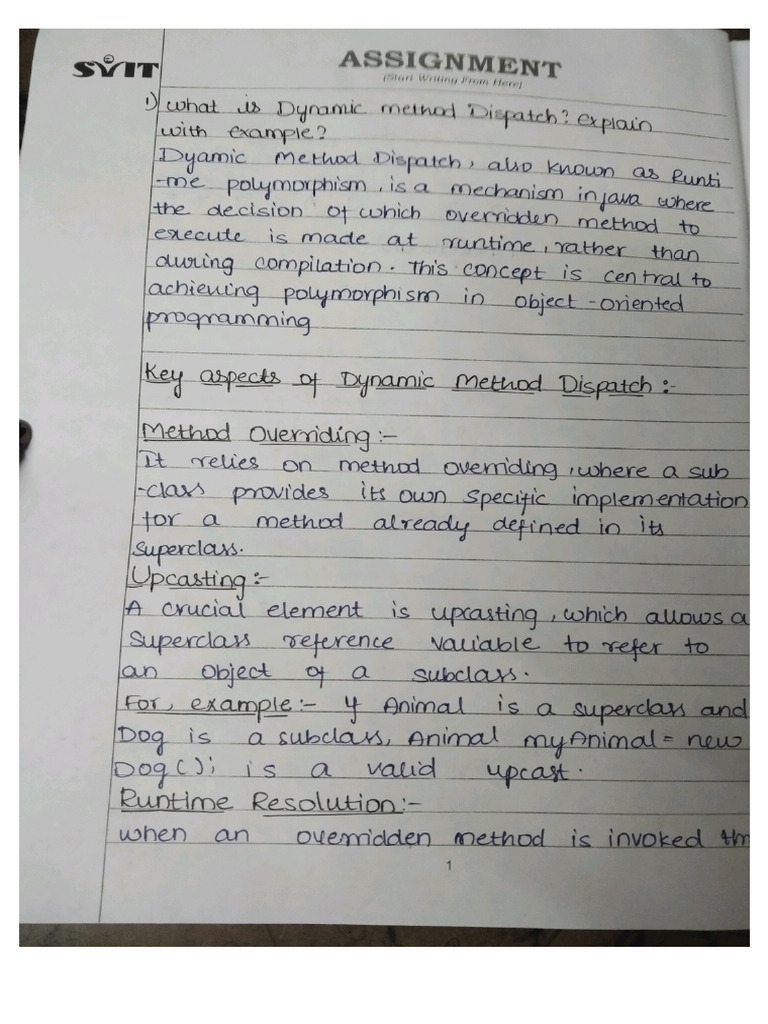 SVIT
ASSIGNMENT
(Start Writing From Here)
1) What is Dynamic method Dispatch? explain
with example?
Dyamic Method Dispatch, also known as Runti
-me polymorphism, is a mechanism in java where
the decision of which overridden method to
execute is made at runtime, rather than
during compilation. This concept is central to
achieving polymorphism in object-oriented
programming
Key aspects of Dynamic Method Dispatch:-
Method Overriding:-
It relies on method overriding, where a sub
-class provides its own specific implementation
for a method already defined in its
superclass.
Upcasting:-
A crucial element is upcasting, which allows a
superclass reference variable to refer to
an object of a subclass.
For, example:- if Animal is a superclass and
Dog is a subclass, Animal myAnimal = new
Dog(); is a valid upcast.
Runtime Resolution:-
when an overridden method is invoked
1